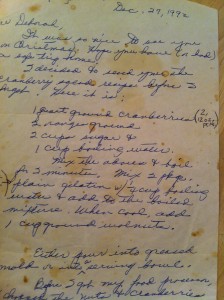 Dec. 27, 1992
Dear Deborah,
It was so nice to see you
on Christmas. Hope you
a trip home.
I decided to send you the
cranberry recipe before I
forgot. Here it is:
1 quart ground cranberries (2
2 oranges ground
2 cups sugar &
1 cup boiling water.
Mix the above & boil
for 2 minutes. Mix 2 pkg.
plain gelatin w/ 1 cup boiling
water & add to the boiled
mixture. When cool, add
1 cup ground walnuts.
Either pour into greased
mold or serving bowl.
Before I got my food processor,
the nuts & cranberries